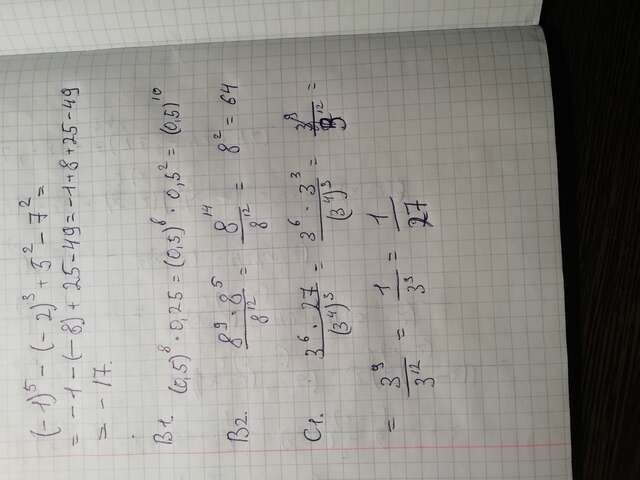 (-1)⁵ - (-2)³ + 5² - 7² =
= -1 - (-8) + 25 - 49 = -1 + 8 + 25 - 49
= -17.
B1. (0,5)⁸ · 0,25 = (0,5)⁸ · 0,5² = (0,5)¹⁰
B2. 8⁹ · 8⁵ / 8¹² = 8¹⁴ / 8¹² = 8² = 64
C1. 3⁶ · 27 / (3⁴)³ = 3⁶ · 3³ / (3⁴)³ = 3⁹ / 3¹² =
= 3⁹ / 3¹² = 1 / 3³ = 1 / 27